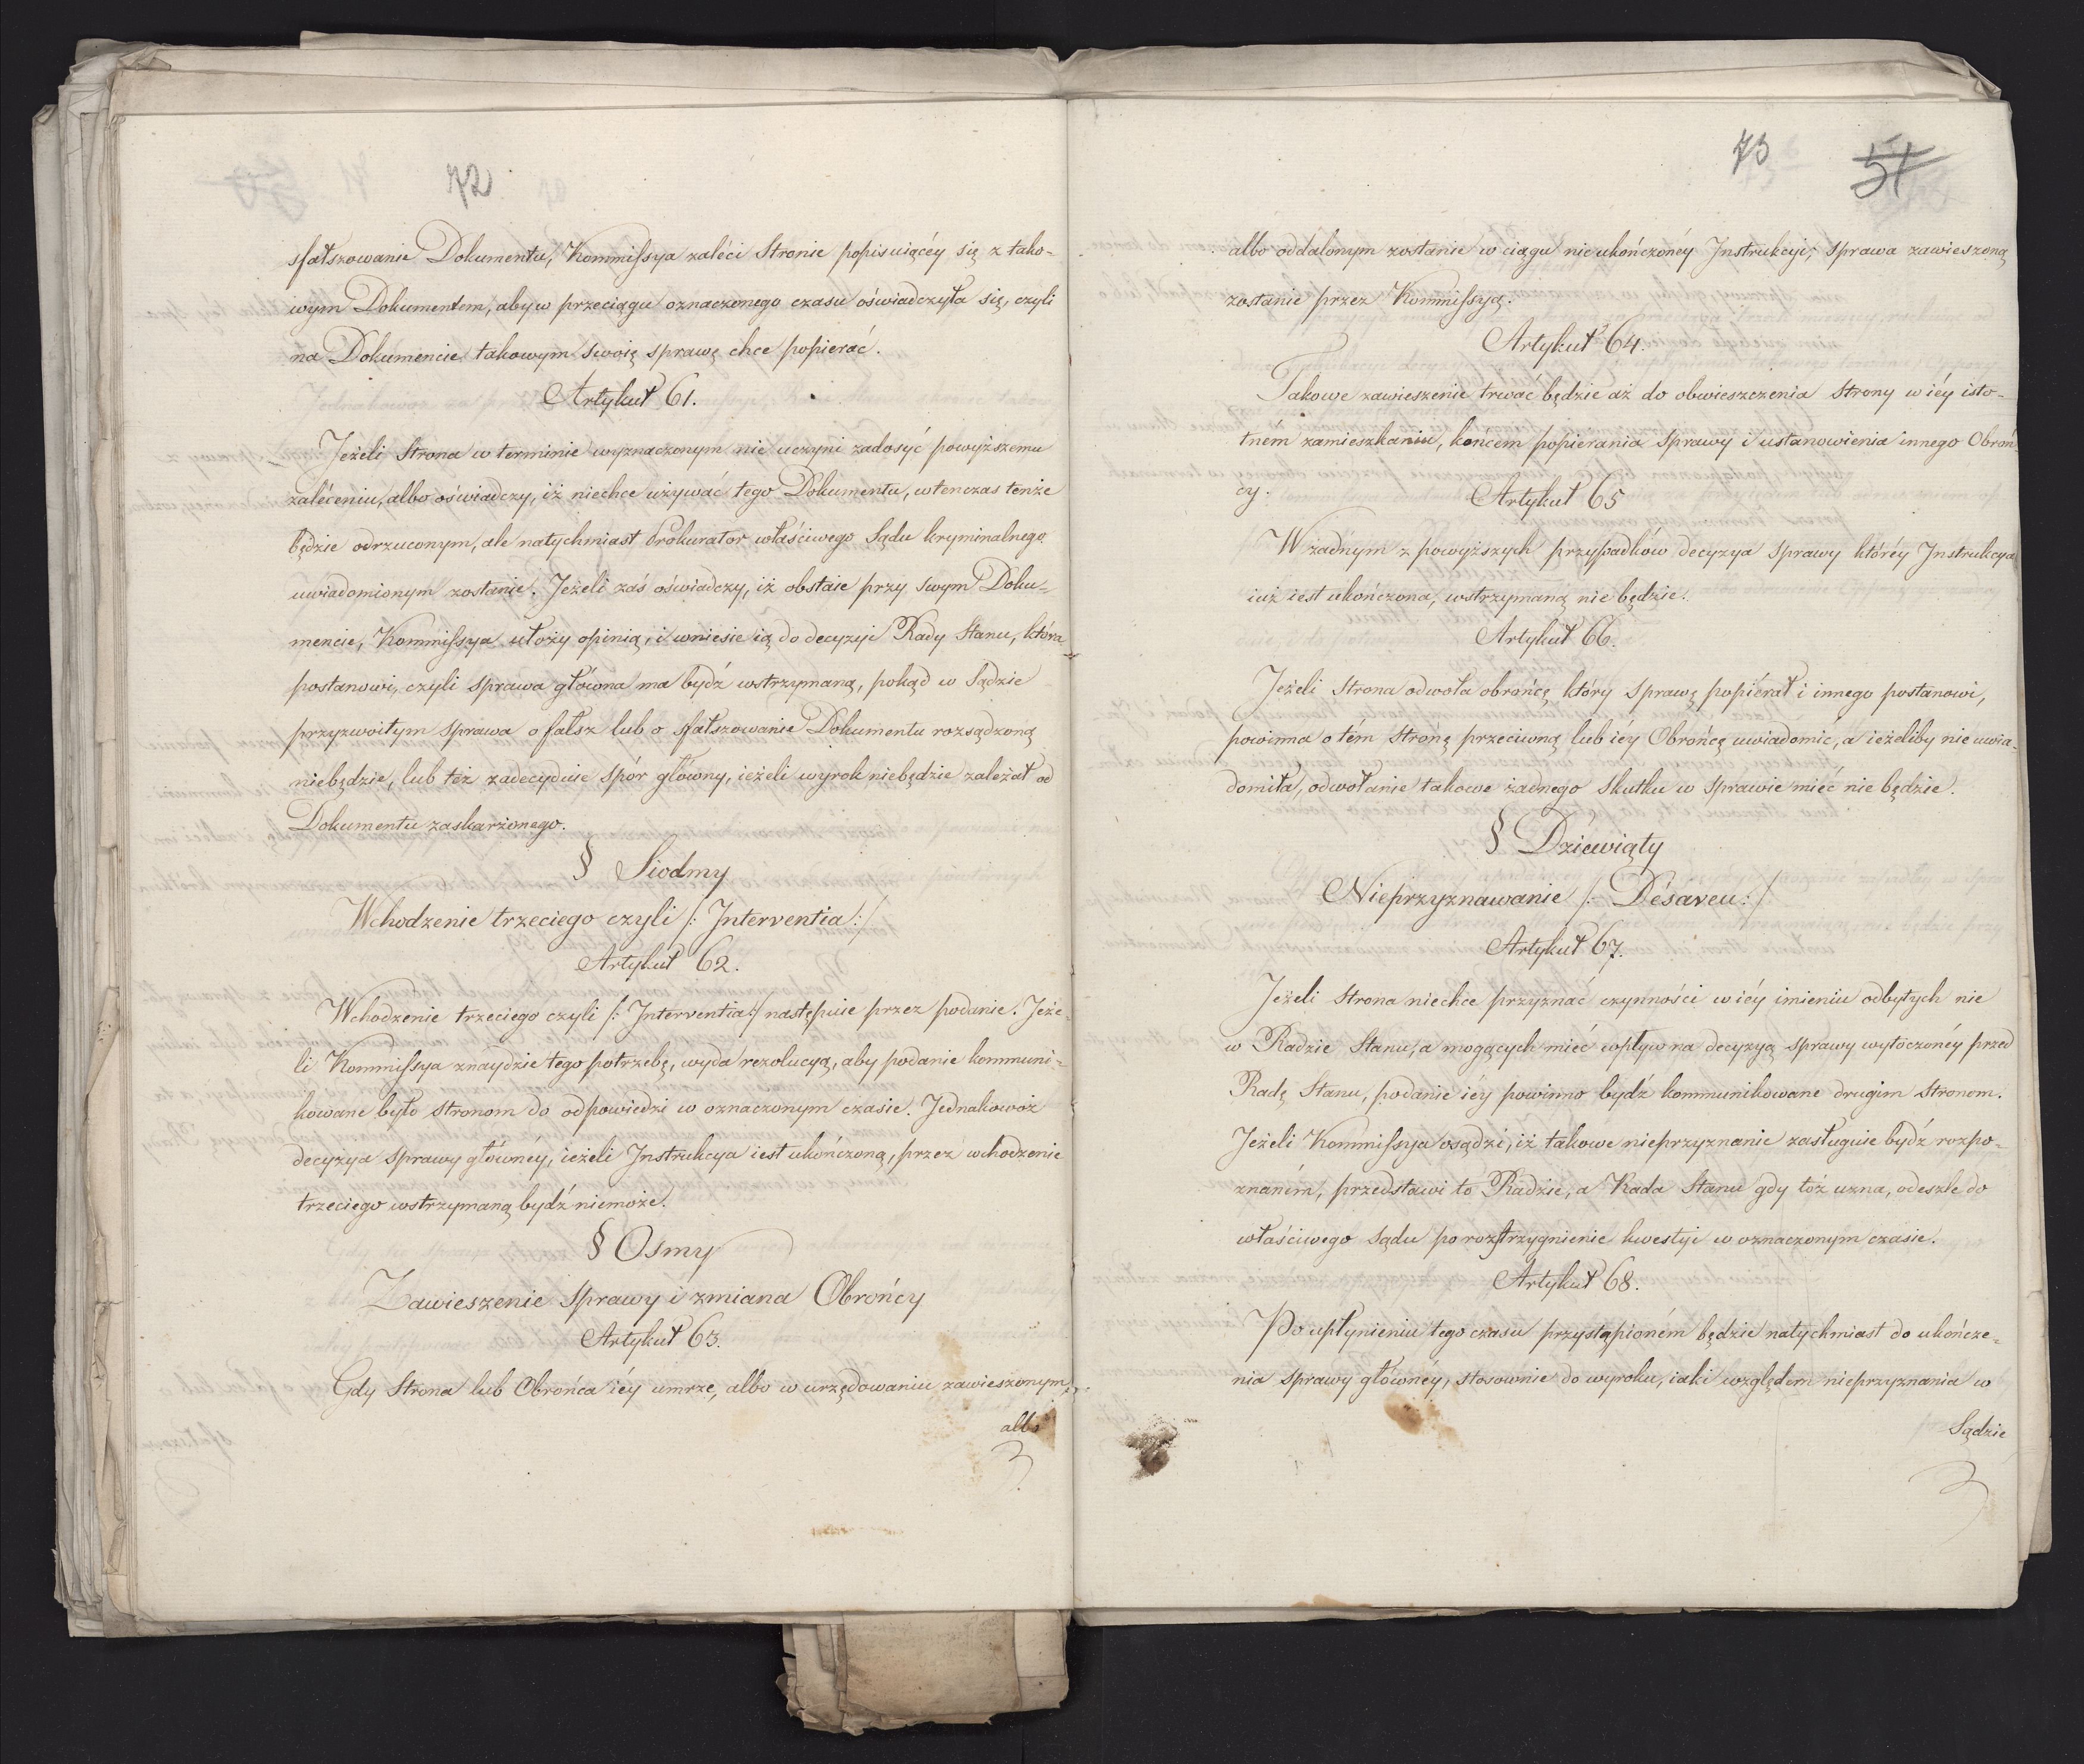 72
sfałszowanie Dokumentu, Kommissya zaléci Stronie popisuiącéy się z tako-
wym Dokumentem, aby w przeciągu oznaczonego czasu oświadczyła się, czyli
na Dokumencie takowym swoię sprawę chce popierać.
Artykuł 61.
Jeżeli Strona w terminie wyznaczonym nie uczyni zadosyć powyższemu
zaléceniu, albo oświadczy, iż niechce używać tego Dokumentu, wtenczas tenże
będzie odrzuconym, ale natychmiast Prokurator właściwego Sądu kryminalnego
uwiadomionym zostanie. Jeżeli zaś oświadczy, iż obstaie przy swym Doku-
mencie, Kommissya ułoży opinią, i wniesie ią do decyzyi Rady Stanu, która
postanowi, czyli sprawa główna ma bydź wstrzymaną, pokąd w Sądzie
przyzwoitym sprawa o fałsz lub o sfałszowanie Dokumentu rozsądzoną
niebędzie, lub też zadecyduie spór główny, ieżeli wyrok niebędzie zależał od
Dokumentu zaskarżonego.
§ Siodmy
Wchodzenie trzeciego czyli /: Interventia :/
Artykuł 62.
Wchodzenie trzeciego czyli /: Interventia :/ następuie przez podanie. Jeże-
li Kommissya znaydzie tego potrzebę, wyda rezolucyą, aby podanie kommuni-
kowane było stronom do odpowiedzi w oznaczonym czasie. Jednakowoż
decyzya sprawy główney, ieżeli Instrukcya iest ukończoną, przez wchodzenie
trzeciego wstrzymaną bydź niemoże.
§ Osmy
Zawieszenie sprawy i zmiana Obrońcy
Artykuł 63.
Gdy Strona lub Obrońca iéy umrze, albo w urzędowaniu zawieszonym,
albo
73
51
albo oddalonym zostanie w ciągu nieukończonéy Instrukcyi, sprawa zawieszoną
zostanie przez Kommissyą.
Artykuł 64.
Takowe zawieszenie trwać będzie aż do obwieszczenia Strony w iéy isto-
tném zamieszkaniu, końcem popierania sprawy i ustanowienia innego Obroń-
cy.
Artykuł 65
W żadnym z powyższych przypadków decyzya sprawy któréy Instrukcya
iuż iest ukończona, wstrzymaną nie będzie.
Artykuł 66.
Jeżeli Strona odwoła obrońcę który sprawę popiérał i innego postanowi,
powinna o tém stronę przeciwną lub iéy Obrońcę uwiadomić, a ieżeliby nie uwia-
domiła, odwołanie takowe żadnego skutku w sprawie mieć nie będzie.
§ Dziewiąty
Nieprzyznawanie /: Désaveu :/
Artykuł 67.
Jeżeli Strona niechce przyznać czynności w iéy imieniu odbytych nie
w Radzie Stanu, a mogących mieć wpływ na decyzyą sprawy wytoczonéy przed
Radę Stanu, podanie iéy powinno bydź kommunikowane drugim stronom.
Jeżeli Kommissya osądzi, iż takowe nieprzyznanie zasługuie bydź rozpo-
znaném, przedstawi to Radzie, a Rada Stanu gdy toż uzna, odeszle do
właściwego Sądu po rozstrzygnienie kwestyi w oznaczonym czasie.
Artykuł 68.
Po upłynieniu tego czasu przystąpioném będzie natychmiast do ukończe-
nia sprawy główney, stosownie do wyroku, iaki względem nieprzyznania w
Sądzie